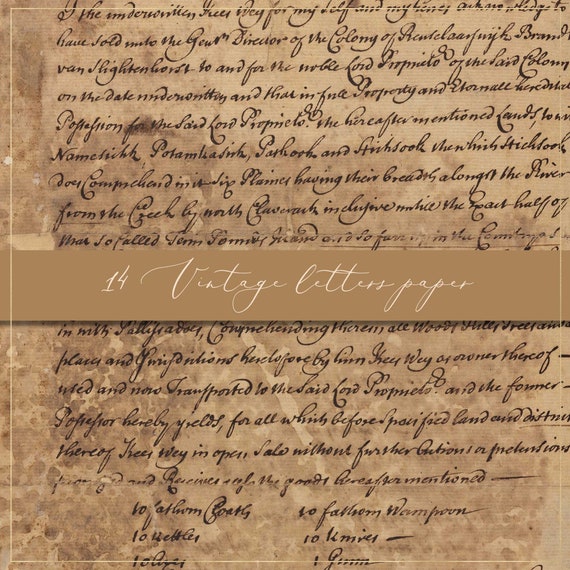 I the underwritten Trees Wey for my self and my lines acknowledge to
have sold unto the Gent:n Director of the Colony of Renselaarswijk Brandt
van Slightenhorst to and for the noble Lord Propriet:r of the Said Colony
on the date underwritten and that in full Property and Eternall heredita
Possession for the Said Lord Propriet:r the hereafter mentioned Lands, to wi
Namesickk, Potamkasick, Paskook and Sticksook the which Sticksook
does Comprehend in it Six Plaines having their breadth alongst the River
from the Creek by north Claverack inclusive untill the Exact half of
that so called and so farr in the Country as
14 Vintage letters paper
in with Comprehending therein all Woods Hills Trees and
places and Jurisdictions heretofore by him Trees Wey as owner thereof
used and now Transported to the Said Lord Propriet:r and the former
Possessor hereby yields, for all which before Specified land and district
thereof Trees Wey in open Sale without further Cautions or pretensions
and Receives only the goods hereafter mentioned
10 fathom Cloath 10 fathom Wampoon
10 Kettles 10 Knives
10 Axes 1 Gunn